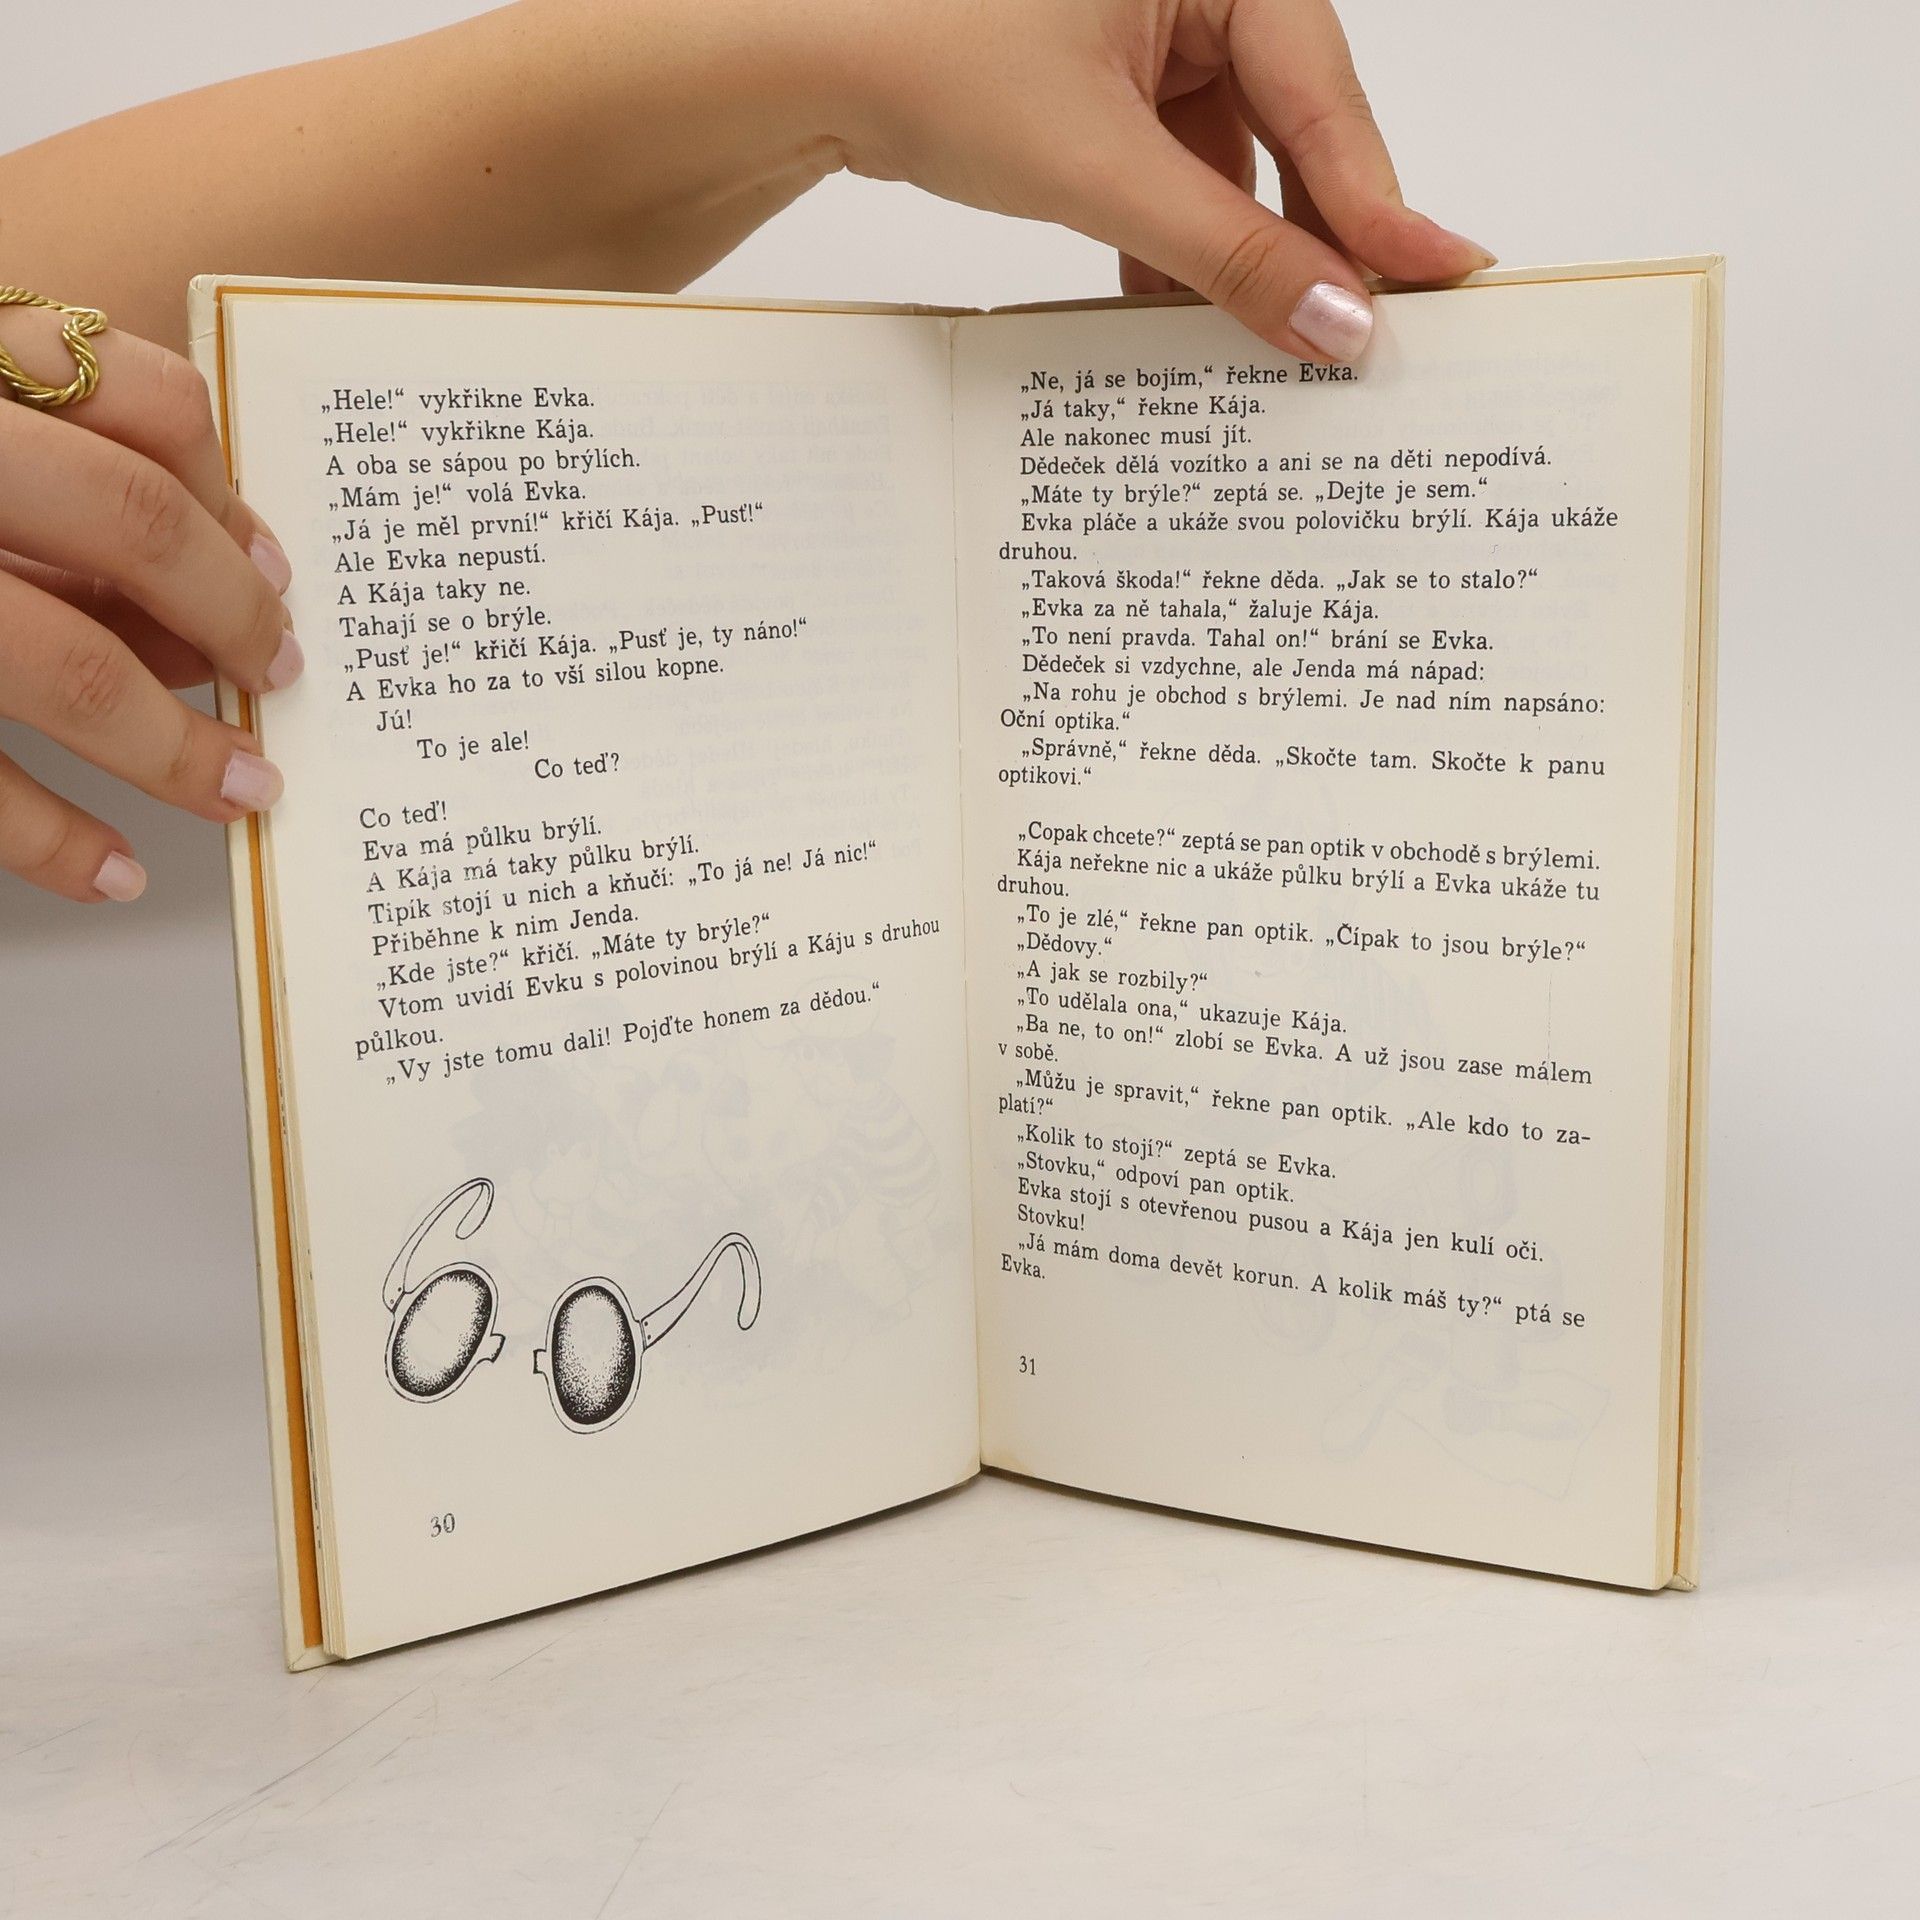 „Hele!“ vykřikne Evka.
„Hele!“ vykřikne Kája.
A oba se sápou po brýlích.
„Mám je!“ volá Evka.
„Já je měl první!“ křičí Kája. „Pusť!“
Ale Evka nepustí.
A Kája taky ne.
Tahají se o brýle.
„Pusť je!“ křičí Kája. „Pusť je, ty náno!“
A Evka ho za to vší silou kopne.
Jú!
To je ale!
Co teď?
Co teď!
Eva má půlku brýlí.
A Kája má taky půlku brýlí.
Tipík stojí u nich a kňučí: „To já ne! Já nic!“
Přiběhne k nim Jenda.
„Kde jste?“ křičí. „Máte ty brýle?“
Vtom uvidí Evku s polovinou brýlí a Káju s druhou
půlkou.
„Vy jste tomu dali! Pojďte honem za dědou.“
30
„Ne, já se bojím,“ řekne Evka.
„Já taky,“ řekne Kája.
Ale nakonec musí jít.
Dědeček dělá vozítko a ani se na děti nepodívá.
„Máte ty brýle?“ zeptá se. „Dejte je sem.“
Evka pláče a ukáže svou polovičku brýlí. Kája ukáže
druhou.
„Taková škoda!“ řekne děda. „Jak se to stalo?“
„Evka za ně tahala,“ žaluje Kája.
„To není pravda. Tahal on!“ brání se Evka.
Dědeček si vzdychne, ale Jenda má nápad:
„Na rohu je obchod s brýlemi. Je nad ním napsáno:
Oční optika.“
„Správně,“ řekne děda. „Skočte tam. Skočte k panu
optikovi.“
„Copak chcete?“ zeptá se pan optik v obchodě s brýlemi.
Kája neřekne nic a ukáže půlku brýlí a Evka ukáže tu
druhou.
„To je zlé,“ řekne pan optik. „Čípak to jsou brýle?“
„Dědovy.“
„A jak se rozbily?“
„To udělala ona,“ ukazuje Kája.
„Ba ne, to on!“ zlobí se Evka. A už jsou zase málem
v sobě.
„Můžu je spravit,“ řekne pan optik. „Ale kdo to za-
platí?“
„Kolik to stojí?“ zeptá se Evka.
„Stovku,“ odpoví pan optik.
Evka stojí s otevřenou pusou a Kája jen kulí oči.
Stovku!
„Já mám doma devět korun. A kolik máš ty?“ ptá se
Evka.
31